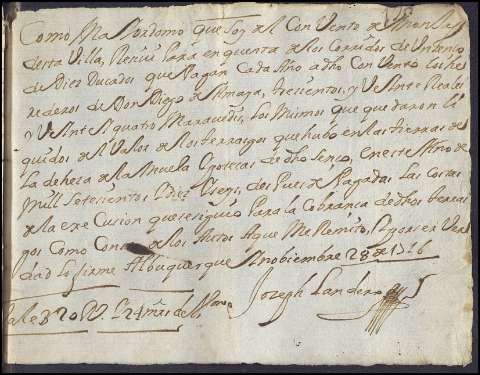 Como Maiordomo que soy del Conuento de Monjas
desta Villa, Reciui para en quenta de los Corridos de Un tenso
de Diez Ducados que Pagan Cada Año a dho Conuento los he
rederos de Don Diego de Amaya, trescientos y Veinte Reales
y Veinte i quatro Marauedis, los Mismos que quedaron li
quidos del Valor de los terrazgos que hubo en las tierras de
la dehesa de la Anuela Ypotecas de dho Senço, en este Año de
Mill Setecientos i Diez i Seys, despues de Pagadas las Costas
de la exe Cusion que se siguio Para la Cobranca de dhos terraz
gos Como Consta de los Autos Aque Me Remito, i por ser Ver
dad lo firme Alburquerque Nobiembre 28 de 1716
Joseph Landero
Vale 320 Rs i 24 mrs de Von